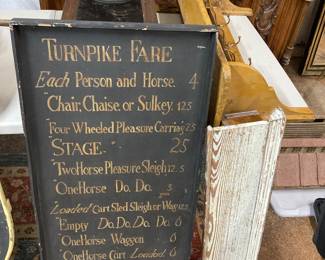 TURNPIKE FARE
Each Person and Horse. 4
Chair, Chaise, or Sulkey. 12.5
Four Wheeled Pleasure Carriag 25
STAGE. 25
Two Horse Pleasure Sleigh 12.5
One Horse Do. Do. 3
Loaded Cart Sled Sleigh or Wag. 12.5
Empty Do. Do. Do. Do. 6
One Horse Waggon 6
One Horse Cart Loaded 6